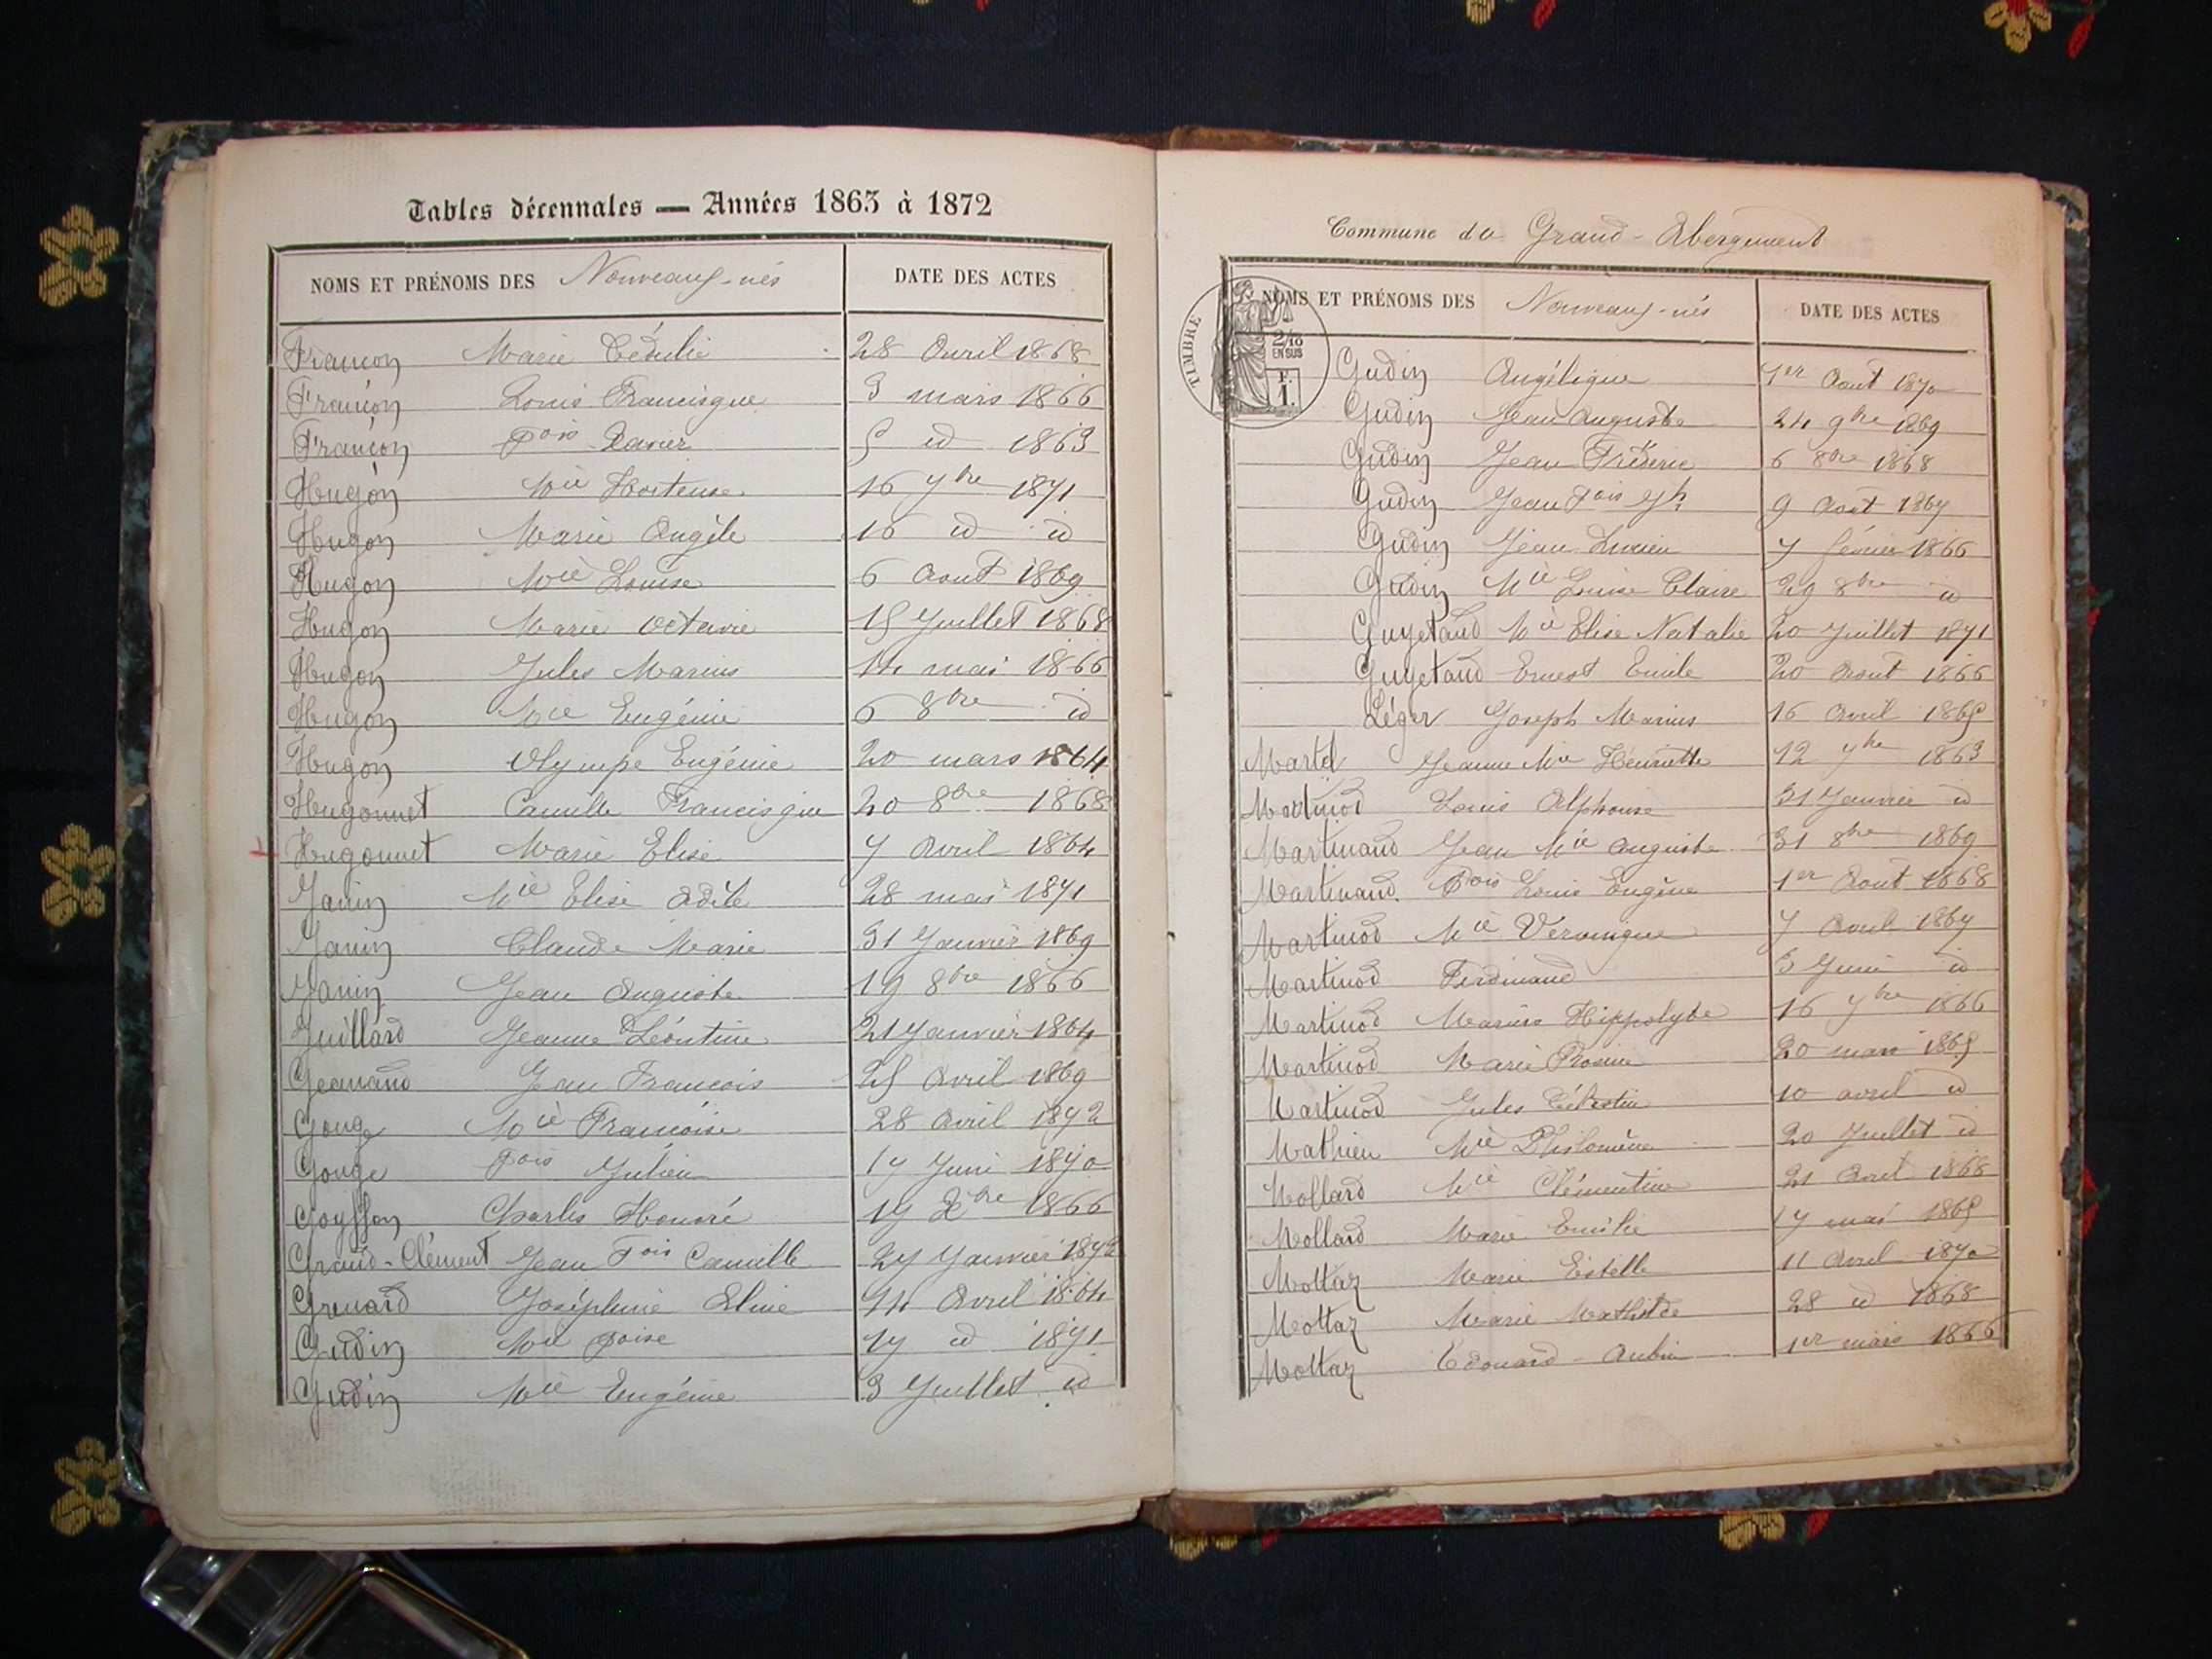 Tables décennales — Années 1863 à 1872
NOMS ET PRÉNOMS DES Nouveaux-nés DATE DES ACTES
Françon Marie Cédulie 28 Avril 1868
Françon Louis Francisque 3 mars 1866
Françon Fois Xavier 5 id 1863
Hugon Mie Hortense 16 7bre 1871
Hugon Marie Angèle 16 id id
Hugon Mie Louise 6 Aout 1869
Hugon Marie Octavie 15 Juillet 1868
Hugon Jules Marius 14 mai 1866
Hugon Mie Eugénie 6 8bre id
Hugon Olympe Eugénie 20 mars 1864
Hugonnet Camille Francisque 20 8bre 1868
Hugonnet Marie Elise 7 Avril 1864
Janin Mie Elise Adèle 28 mai 1871
Janin Claude Marie 31 Janvier 1869
Janin Jean Auguste 19 8bre 1866
Juillard Jeanne Léontine 21 Janvier 1864
Geanand Jean François 25 Avril 1869
Gouge Mie Françoise 28 Avril 1872
Gouge Fois Julien 17 Juin 1870
Goysson Charles Honoré 19 Xbre 1866
Grand-Clément Jean Fois Camille 27 Janvier 1872
Grenard Joséphine Eline 14 Avril 1864
Gudin Mie Foise 17 id 1871
Gudin Mie Eugénie 3 Juillet id
Commune du Grand-Abergement
TIMBRE
2/10
EN SUS
F.
1.
NOMS ET PRÉNOMS DES Nouveaux-nés DATE DES ACTES
Gudin Angélique 1er Aout 1870
Gudin Jean Auguste 24 9bre 1869
Gudin Jean Fréderic 6 8bre 1868
Gudin Jean Fois Jh 9 Aout 1867
Gudin Jean Lucien 7 février 1866
Gudin Mie Louise Claire 29 8bre id
Guyetand Mie Elise Natalie 20 Juillet 1871
Guyetand Ernest Emile 20 Aout 1866
Léger Joseph Marius 16 Avril 1865
Martel Jeanne Mie Henriette 12 7bre 1863
Martinod Louis Alphonse 31 Janvier id
Martinand Jean Mie Auguste 31 8bre 1869
Martinand Fois Louis Eugène 1er Aout 1868
Martinod Mie Véronique 7 Avril 1867
Martinod Ferdinand 3 Juin id
Martinod Marius Hippolyte 16 7bre 1866
Martinod Marie 20 mars 1865
Martinod Jules Célestin 10 avril id
Mathieu Mie Philomène 20 Juillet id
Mollard Mie Clémentine 21 Avril 1868
Mollard Marie Emilie 17 mai 1865
Mottaz Marie Estelle 11 Avril 1870
Mottaz Marie Mathilde 28 id 1868
Mottaz Edouard-Aubin 1er mars 1866